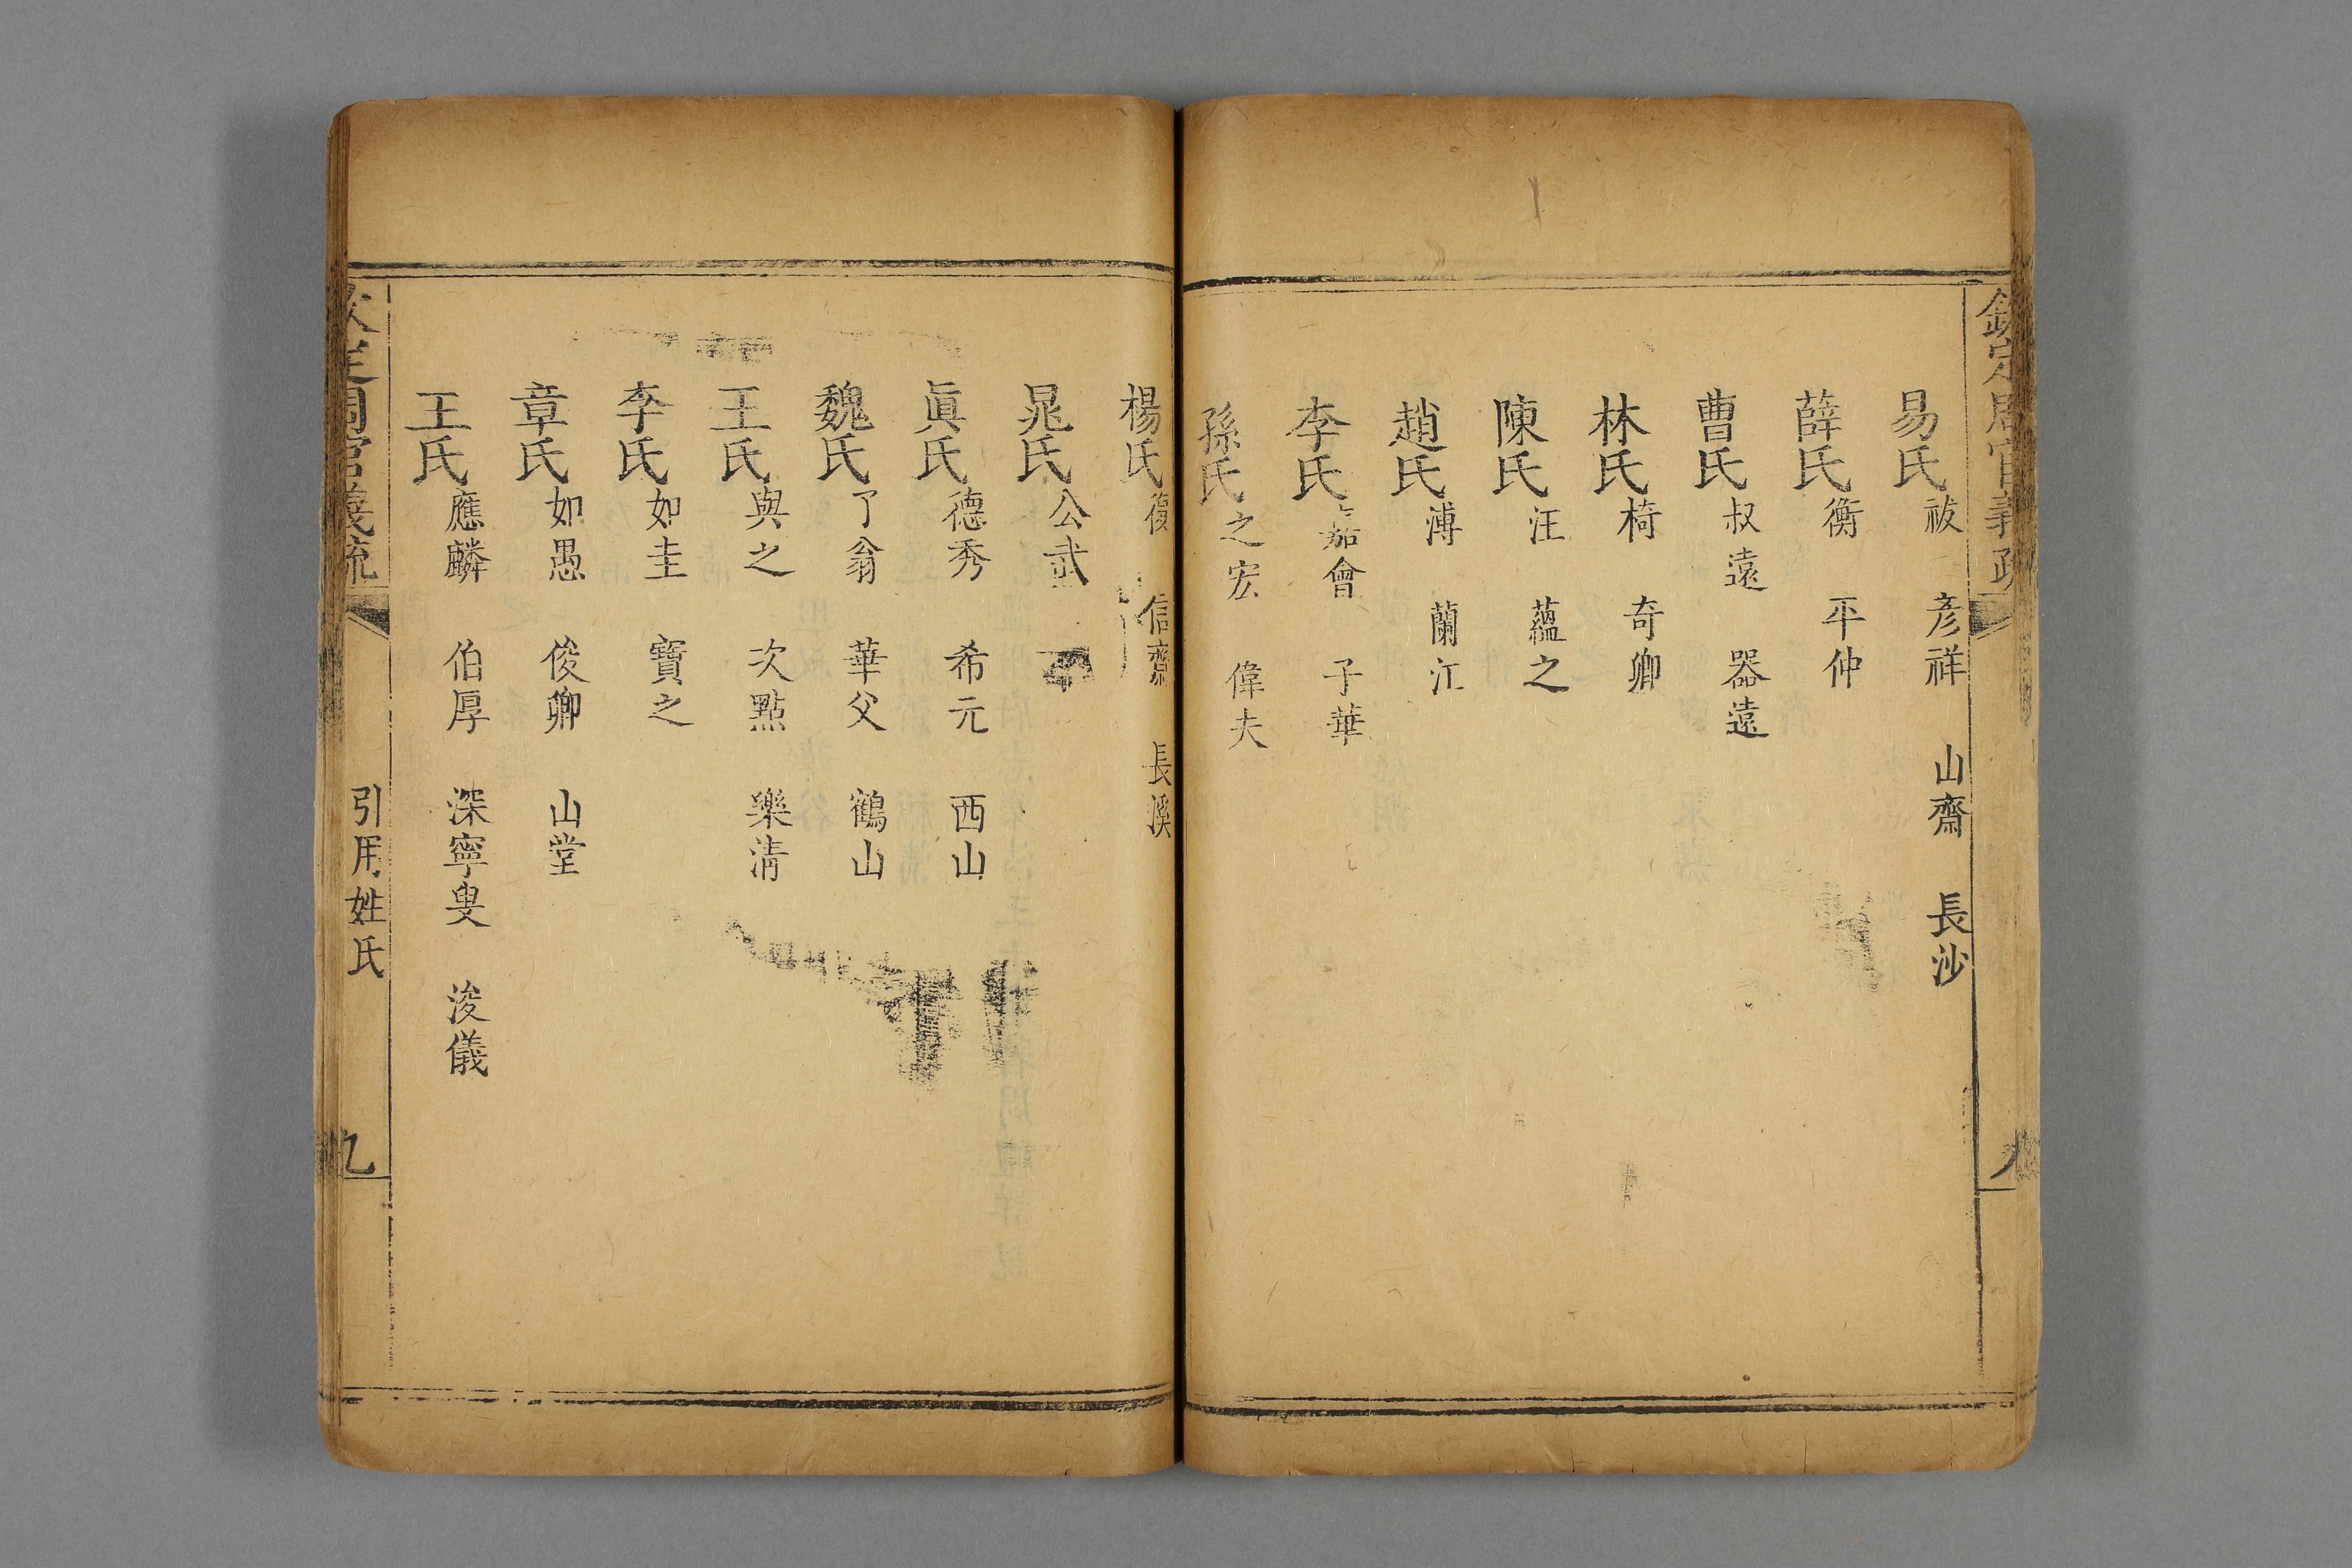 欽定周官義疏
易氏祓 彥祥 山齋 長沙
薛氏衡 平仲
曹氏叔遠 器遠
林氏椅 奇卿
陳氏汪 蘊之
趙氏溥 蘭江
李氏嘉會 子華
孫氏之宏 偉夫
楊氏復 信齋 長溪
晁氏公武
眞氏德秀 希元 西山
魏氏了翁 華父 鶴山
王氏與之 次點 樂淸
李氏如圭 寶之
章氏如愚 俊卿 山堂
王氏應麟 伯厚 深寧叟 浚儀
欽定周官義疏 引用姓氏 九